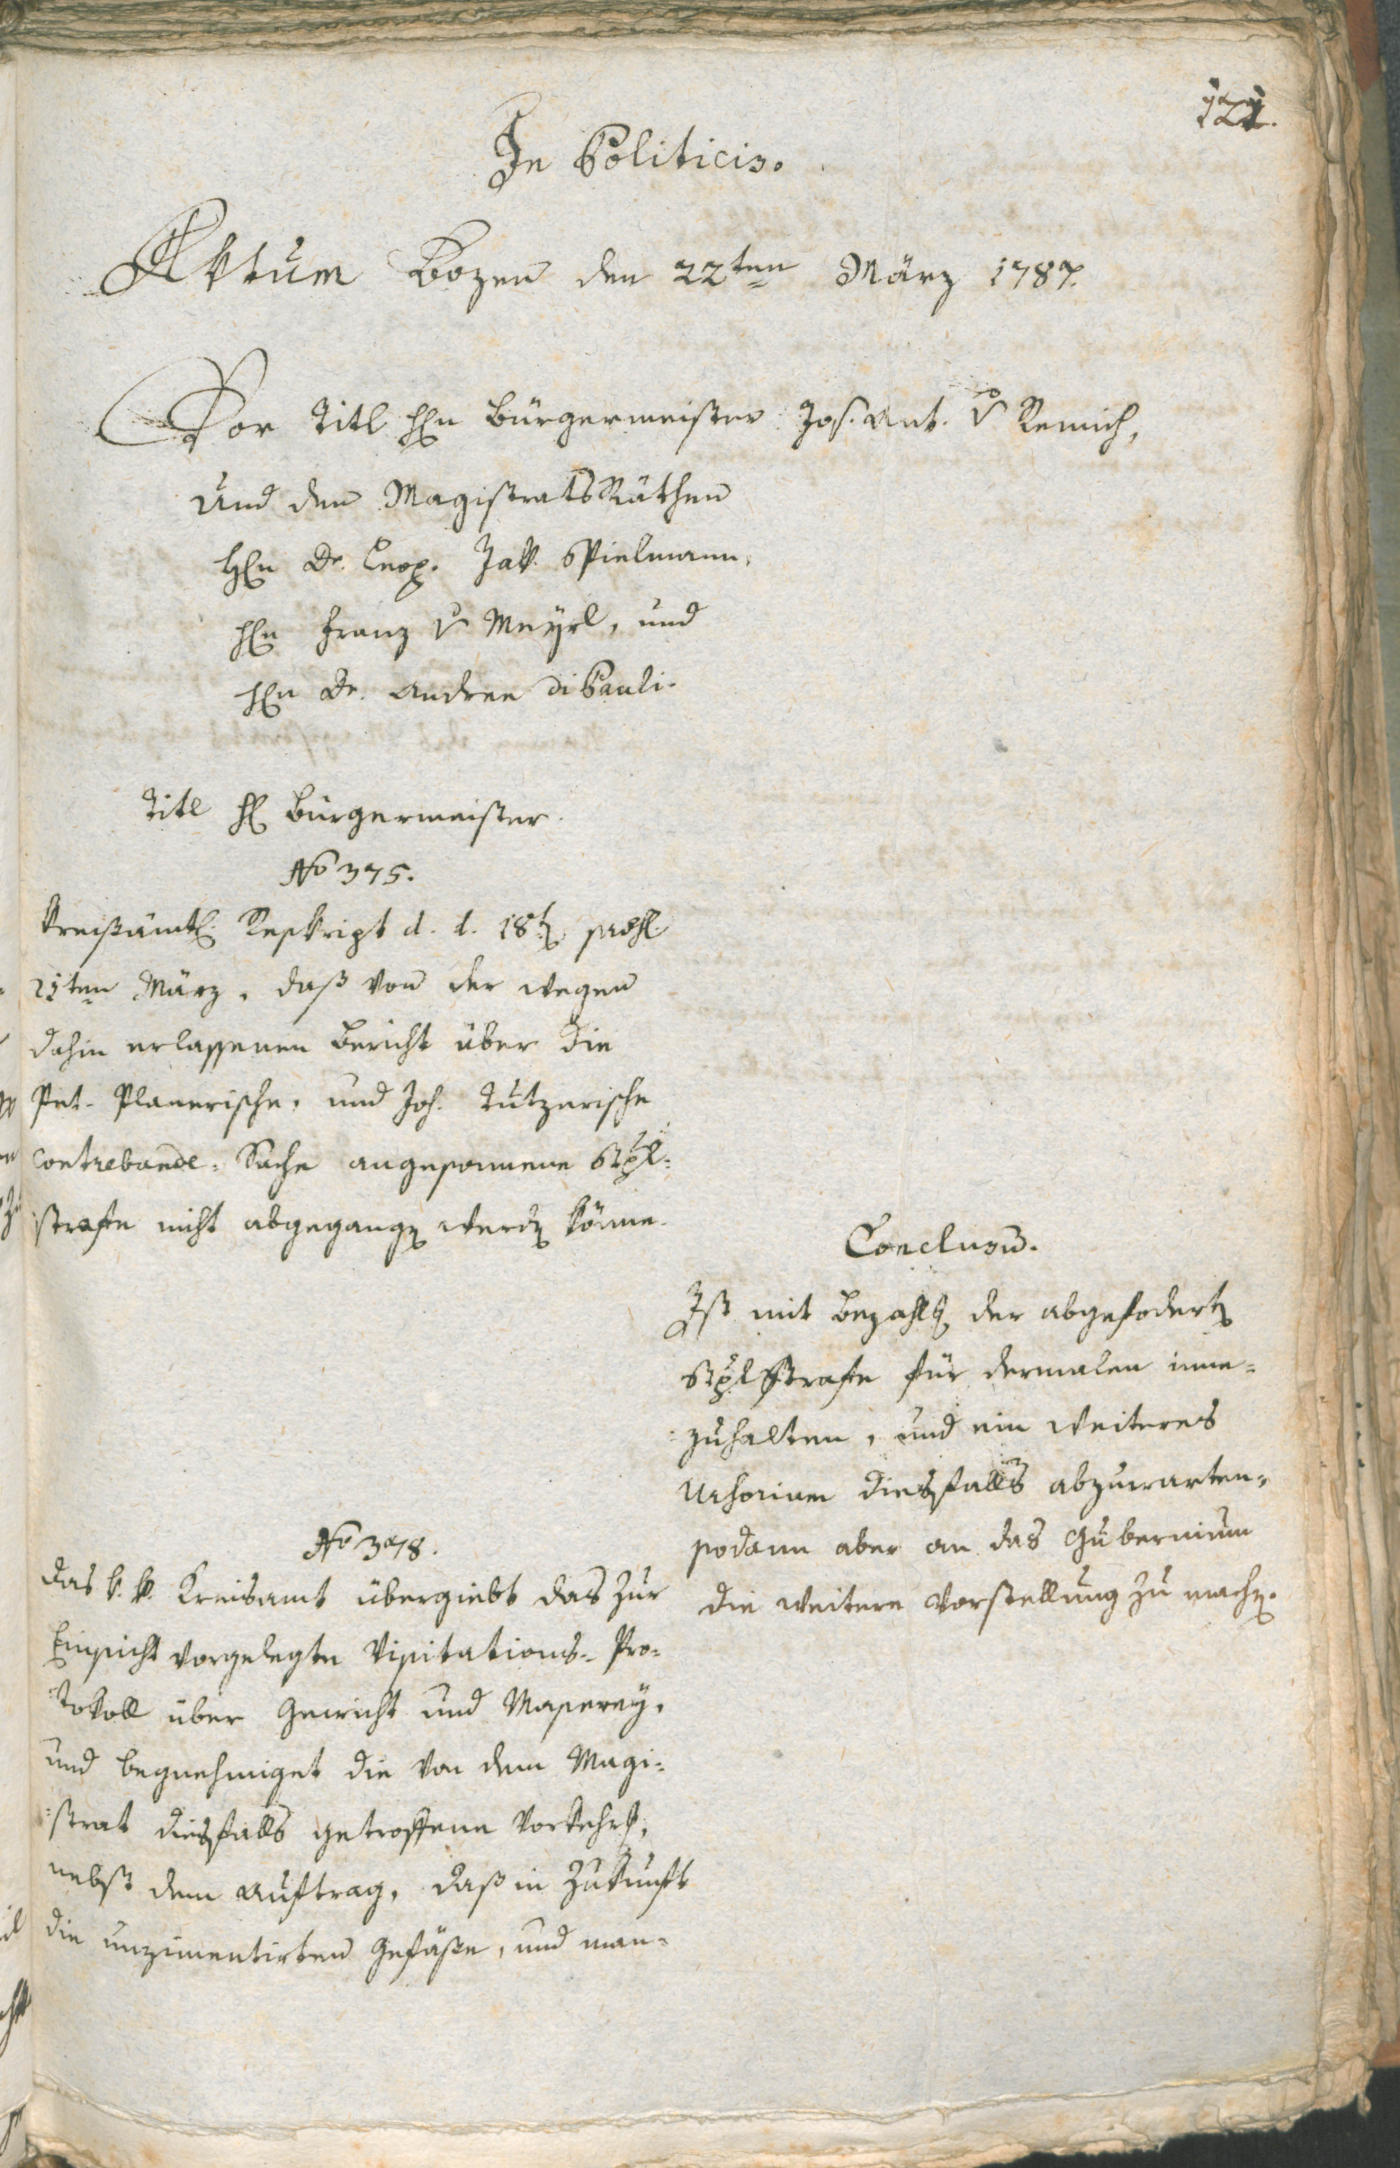 121.
In Politicis.
Aktum Bozen den 22ten März 1787.
Vor Titl Hℓn Bürgermeister Jos. Ant. v Remich,
und den Magistrats Räthen
Hℓn Dr. Leop. Jak. Spielmann,
Hℓn Franz v Meÿrl, und
Hℓn Dr. Andree di Pauli.
Titl Hℓ Bürgermeister.
No 375.
Kreisämtl. Reskript d. d. 18t
21ten März, daß von der wegen
dahin erlassenen Bericht über die
Pet. Planerische, und Joh. Tutzerische
Contrebande-Sache angesonnene Stpl-
strafe nicht abgegangen werden könne.
Conclusum.
Ist mit Bezahlung der abgefoderten
Stplstrafe für dermalen inne-
zuhalten, und ein weiteres
Urhorium diesfalls abzuwarten,
sodann aber an das Gubernium
die weitere Vorstellung zu machen.
No 378.
Das k. k. Kreisamt übergiebt das zur
Einsicht vorgelegte Visitations-Pro-
tokoll über Gewicht und Maserey,
und begnehmiget die von dem Magi-
strat diesfalls getroffene Vorkehrung,
nebst dem Auftrag, daß in Zukunft
die unzimentirten Gefäße, und man-